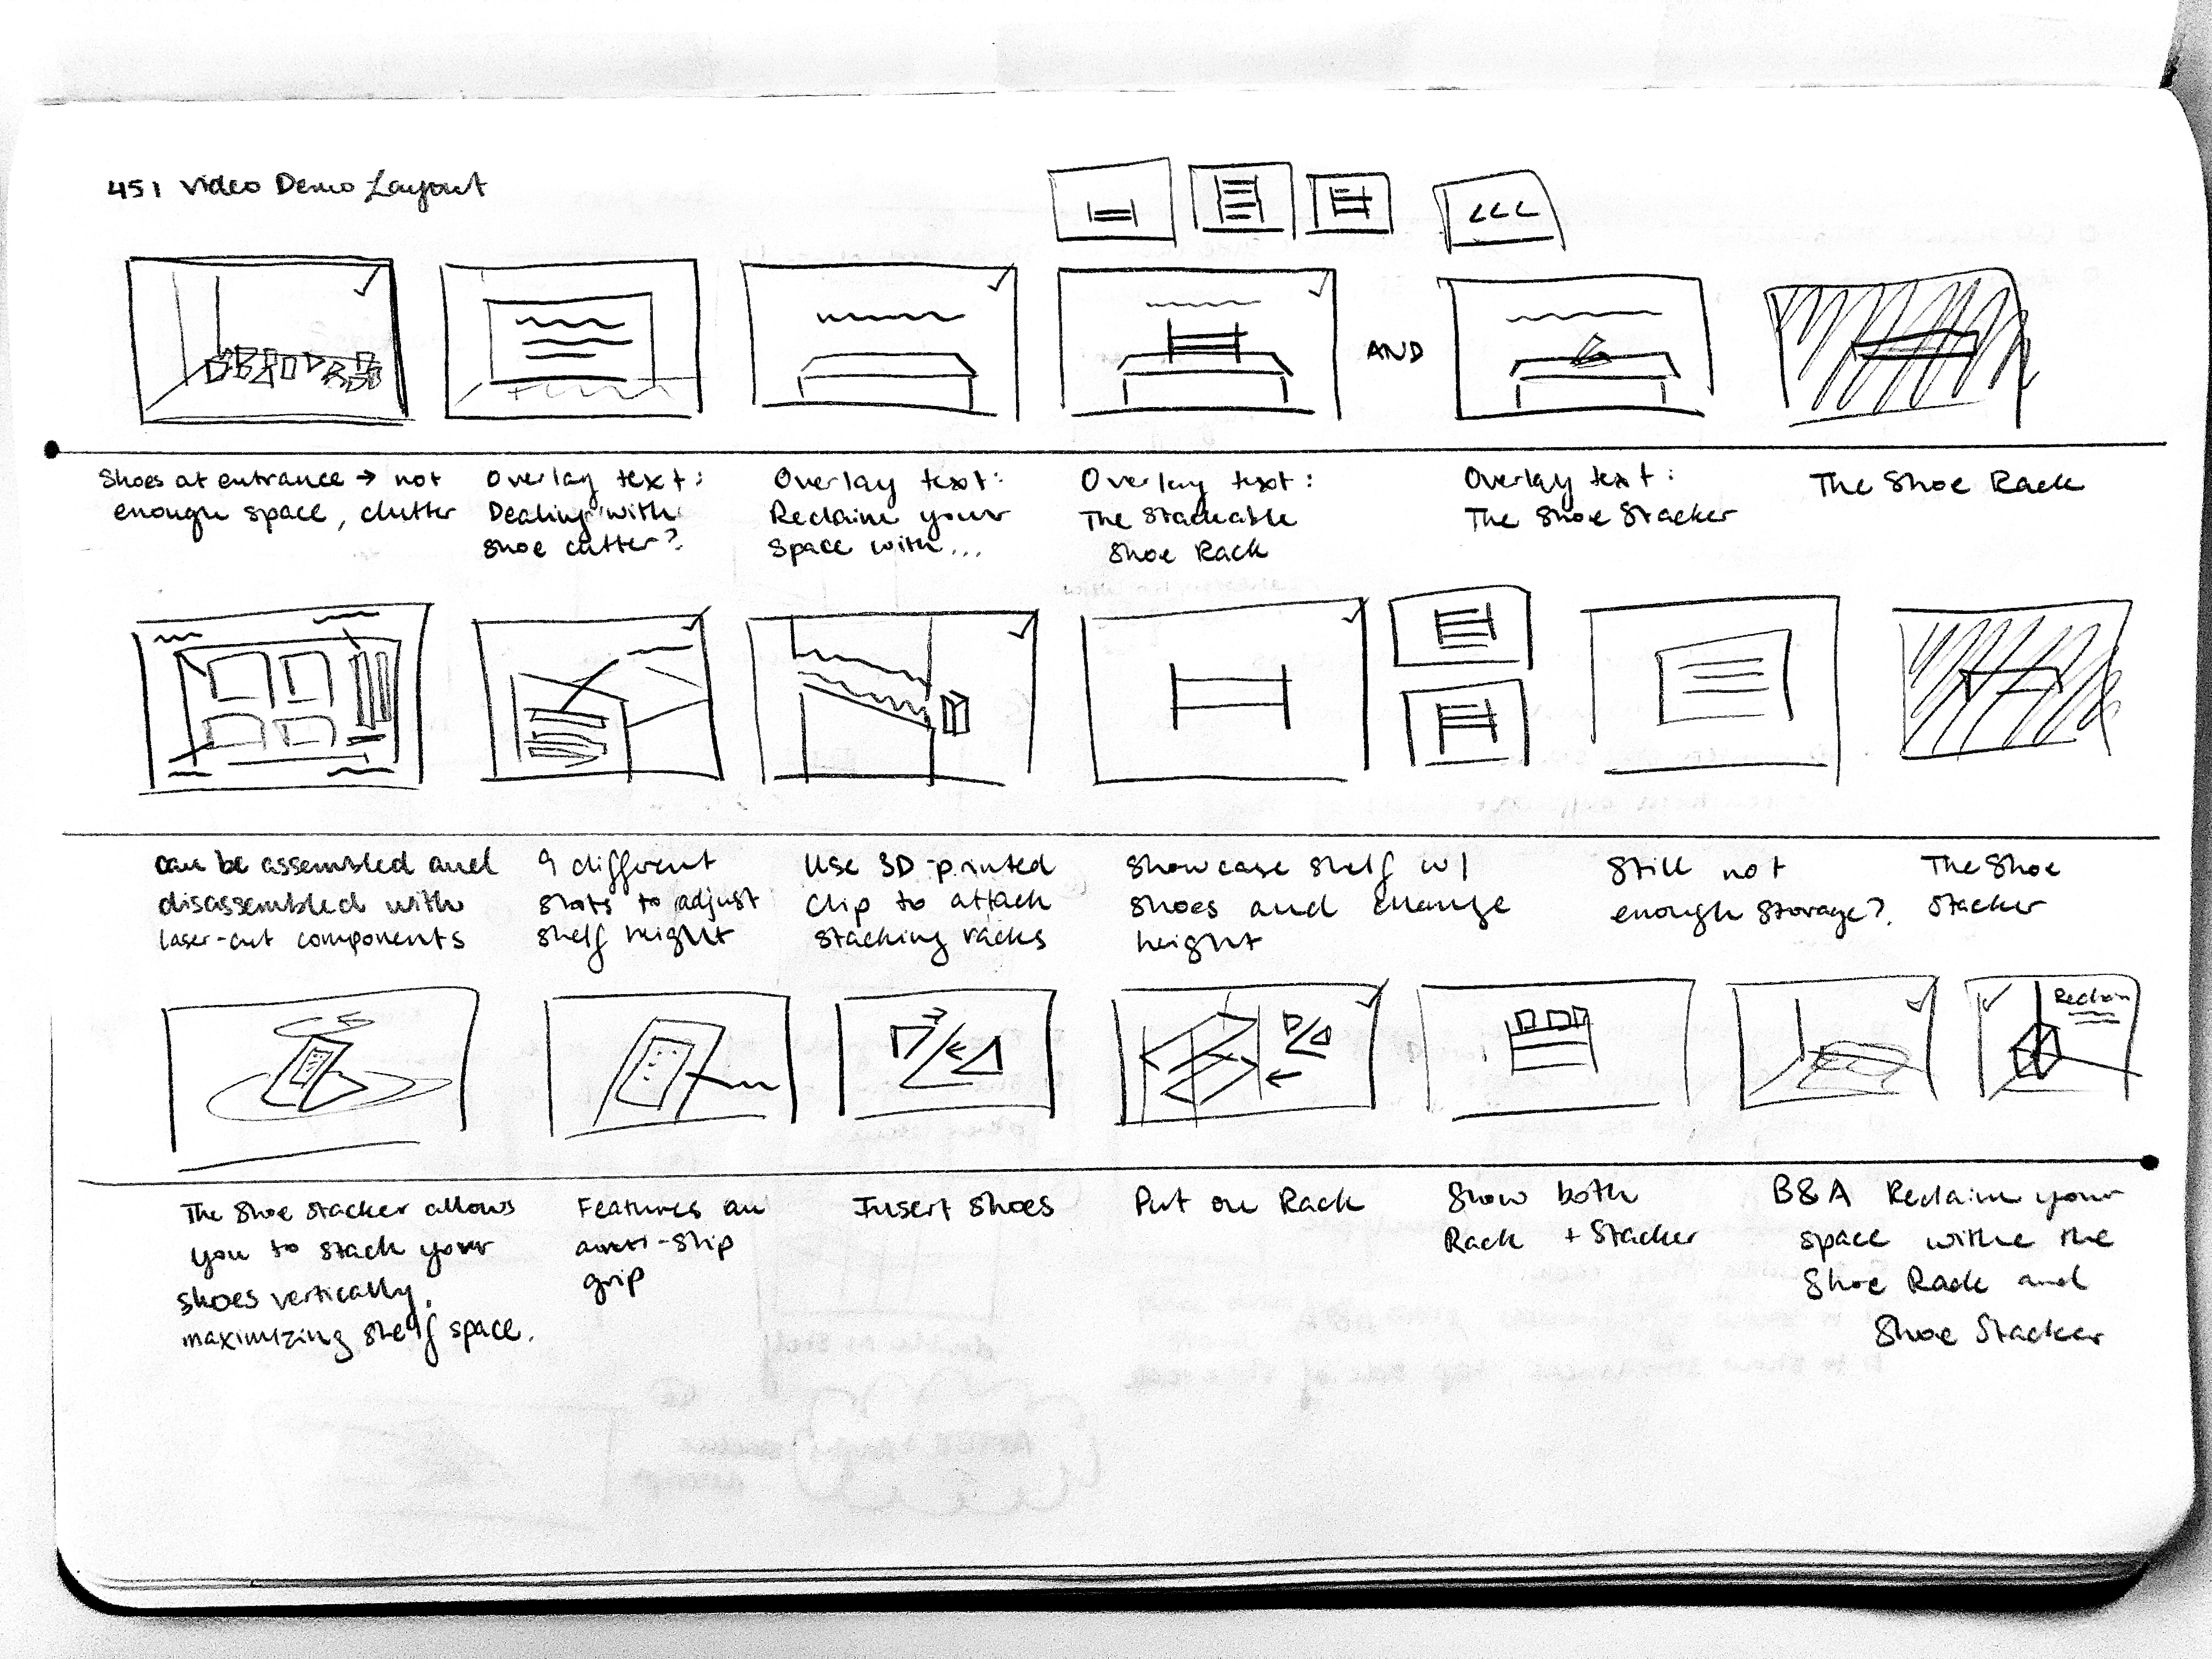 451 Video Demo Layout
AND
Shoes at entrance → not
enough space, clutter
Overlay text:
Dealing with
Shoe cutter?
Overlay text:
Reclaim your
Space with...
Overlay text:
The Stackable
Shoe Rack
Overlay text:
The Shoe Stacker
The Shoe Rack
can be assembled and
disassembled with
laser-cut components
9 different
slots to adjust
shelf height
Use 3D-printed
Clip to attach
stacking racks
Showcase shelf w/
shoes and change
height
Still not
enough storage?
The Shoe
Stacker
Reclaim
The Shoe Stacker allows
you to stack your
shoes vertically,
maximizing shelf space.
Features an
anti-slip
grip
Insert Shoes
Put on Rack
Show both
Rack + Stacker
B&A Reclaim your
space withe the
Shoe Rack and
Shoe Stacker